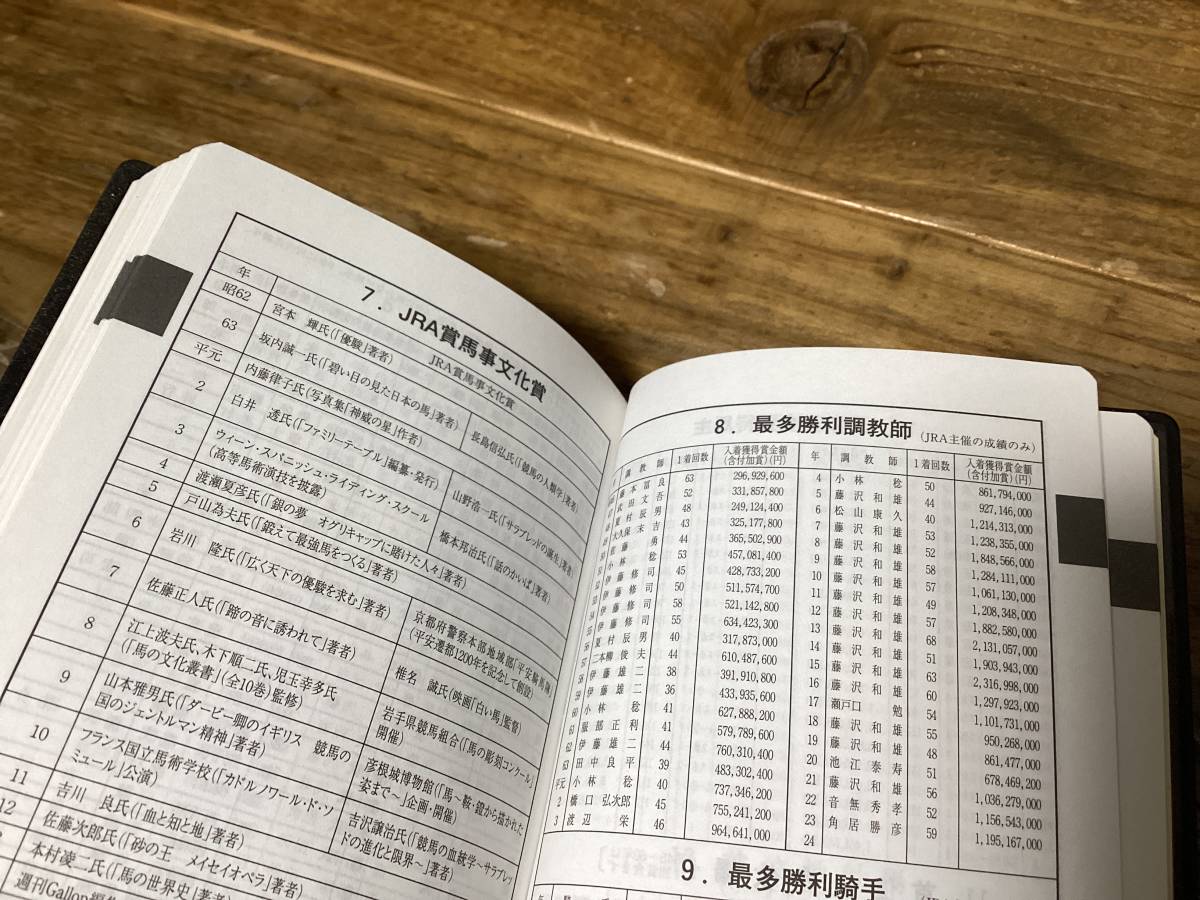 7. JRA賞馬事文化賞
年
JRA賞馬事文化賞
昭62
宮本 輝氏(「優駿」著者)
63
坂内誠一氏(「碧い日の見た日本の馬」著者)
長島信弘氏(「競馬の人類学」著者)
平元
内藤律子氏(写真集「神威の星」作者)
2
白井 透氏(「ファミリーテーブル」編纂・発行)
山野浩一氏(「サラブレッドの誕生」著者)
3
ウィーン・スパニッシュ・ライディング・スクール
(高等馬術演技を披露)
橋本邦治氏(「話のかいば」著者)
4
渡瀬夏彦氏(「銀の夢 オグリキャップに賭けた人々」著者)
5
戸山為夫氏(「鍛えて最強馬をつくる」著者)
6
岩川 隆氏(「広く天下の優駿を求む」著者)
京都府警察本部地域部「平安騎馬隊」
(平安遷都1200年を記念して創設)
7
佐藤正人氏(「蹄の音に誘われて」著者)
椎名 誠氏(映画「白い馬」監督)
8
江上波夫氏、木下順二氏、児玉幸多氏
(「馬の文化叢書」(全10巻)監修)
岩手県競馬組合(「馬の彫刻コンクール」
開催)
9
山本雅男氏(「ダービー卿のイギリス 競馬の
国のジェントルマン精神」著者)
彦根城博物館(「馬〜鞍・鐙から描かれた
姿まで〜」企画・開催)
10
フランス国立馬術学校(「カドル ノワール・ド・ソ
ミュール」公演)
吉沢譲治氏(「競馬の血統学〜サラブレッ
ドの進化と限界〜」著者)
11
吉川 良氏(「血と知と地」著者)
12
佐藤次郎氏(「砂の王 メイセイオペラ」著者)
本村凌二氏(「馬の世界史」著者)
週刊Gallop編集
8. 最多勝利調教師 (JRA主催の成績のみ)
調教師 1着回数 入着獲得賞金額(含付加賞)(円)
年 調教師 1着回数 入着獲得賞金額(含付加賞)(円)
63 296,929,600
52 331,857,800
48 249,124,400
43 325,177,800
44 365,502,900
53 457,081,400
45 428,733,200
50 511,574,700
58 521,142,800
55 634,423,300
40 317,873,000
44 610,487,600
38 391,910,800
36 433,935,600
41 627,888,200
41 579,789,600
44 760,310,400
39 483,302,400
平元 小林 稔 40 737,346,200
2 橋口弘次郎 45 755,241,200
3 渡辺 栄 46 964,641,000
4 小林 稔 50 861,794,000
5 藤沢和雄 44 927,146,000
6 松山康久 40 1,214,313,000
7 藤沢和雄 53 1,238,355,000
8 藤沢和雄 52 1,848,566,000
9 藤沢和雄 58 1,284,111,000
10 藤沢和雄 57 1,061,130,000
11 藤沢和雄 49 1,208,348,000
12 藤沢和雄 57 1,882,580,000
13 藤沢和雄 68 2,131,057,000
14 藤沢和雄 51 1,903,943,000
15 藤沢和雄 63 2,316,998,000
16 藤沢和雄 60 1,297,923,000
17 瀬戸口 勉 54 1,101,731,000
18 藤沢和雄 55 950,268,000
藤沢和雄 48 861,477,000
20 池江泰寿 51 678,469,200
21 藤沢和雄 56 1,036,279,000
22 音無秀孝 52 1,156,543,000
23 角居勝彦 59 1,195,167,000
24
9. 最多勝利騎手